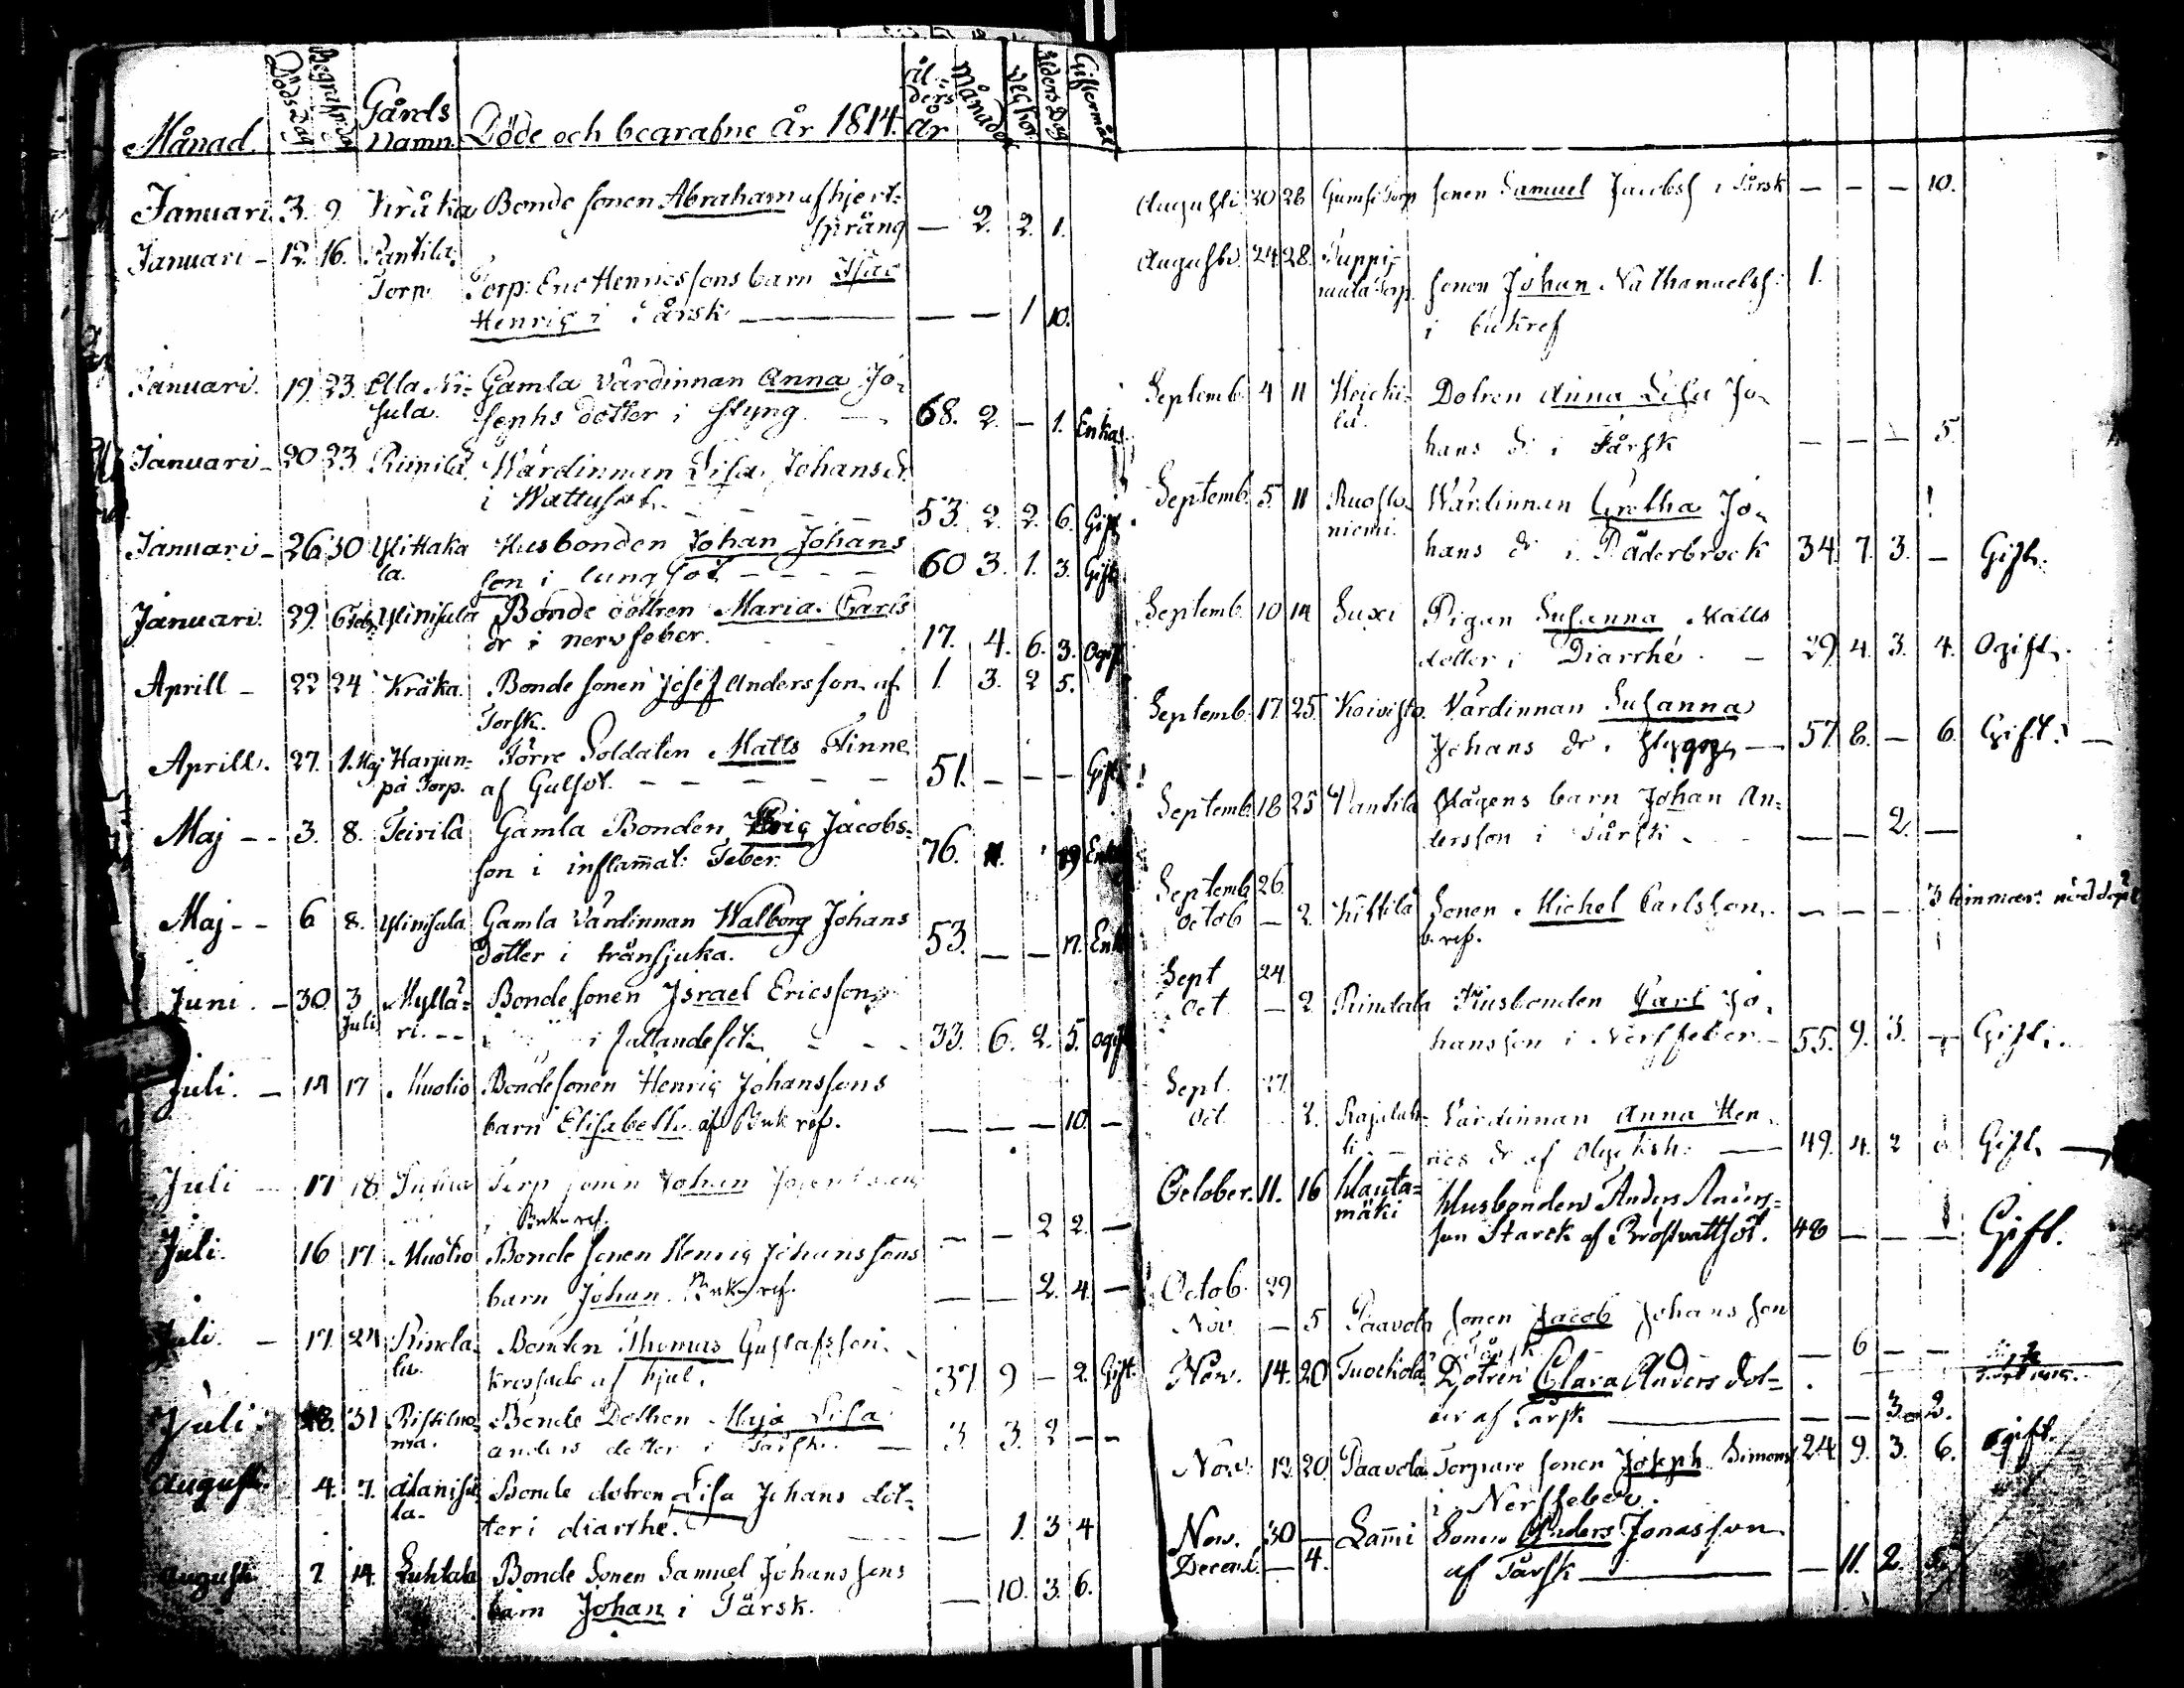 Månad. Döds Dag Begrafn. Dag Gårds Namn Döde och begrafne År 1814. Ål- ders år Månader Veckor Ålders Dag Giftermål
Januari 3. 9. Kråka Bonde sonen Abraham af hjert-
språng — 2. 2. 1.
Januari – 12. 16. Pantila
Torp. Torp: Eric Henricssons barn Isac
Henriç i Tårsk — — 1 10.
Januari. 19. 23. Ella Ni- Gamla Värdinnan Anna Jo-
sula. sephs dotter i styng. — 68. 2. – 1. Enka
Januari – 20 23 Riipilä Wärdinnan Lisa Johans dr
i Wattusot. 53. 2. 2. 6. Gift
Januari – 26 30 Yli Haka Husbonden Johan Johans
la. son i lungsot – – – – 60 3. 1. 3. Gift
Januari. 29. 6 Feb. Ylinisula Bonde dottren Maria Carls
dr i nervfeber. 17. 4. 6. 3. Ogift
Aprill – 22 24 Kråka. Bonde sonen Josef Andersson af 1. 3. 2 5.
Torsk.
Aprill. 27. 1. Maj Harjun- Förre Soldaten Matts Finne
pä Torp. af Gulsot. – – – – – 51. – – – Gift
Maj – – 3. 8. Teirila Gamla Bonden Jacobs-
son i inflam̄at: Feber. 76. 11. 19
Maj – – 6 8. Ylinisula Gamla Värdinnan Walborg Johans
Dotter i trånsjuka. 53. — — 17. Enk
Juni. – 30. 3 Myllä- Bonde sonen Israel Ericsson
Juli ri. – – i fallandesot – – 33. 6. 2. 5. ogift
Juli. – 14 17 Muotio Bondesonen Henriç Johanssons
barn Elisabeth af Buk ref. — — — 10. –
Juli – 17 18 Torp sonen Johan
i Buk ref. — — 2 2. —
Juli. 16 17 Muotio Bonde sonen Henriç Johanssons
barn Johan. Buk ref. — — 2. 4. –
Juli. – 17. 24 Rinda- Bonden Thomas Gustafsson
la. krossade af hjul. 37 9 – 2. Gift.
Juli. 18. 31 Bonde Dothen Maja Lisa
anders dotter i Tårsk. — 3. 3. 2 – –
Augusti. 4. 7. Alanisu- Bonde dotren Lisa Johans dot-
la. ter i diarrhé. — 1. 3 4
Augusti 7. 14. Luhtala Bonde Sonen Samuel Johanssons
barn Johan i Tårsk. — 10. 3. 6.
Augusti. 20 28 Gumsi Torp sonen Samuel Jacobss i Tårsk — – — 10.
Augusti. 24 28. Tuppi-
rauta Torp. sonen Johan Nathanaelss: 1.
i bukref
Septemb. 4 11 Heicki- Dotren Anna Lisa Jo-
lä. hans dr i Tårsk — — — 5.
Septemb. 5. 11 Ruosto- Wärdinnan Gretha Jo-
niemi. hans dr i Råderbrock 34. 7. 3. – Gift.
Septemb. 10 14 Luxi Pigan Susanna Matts
dotter i Diarrhé. – 29. 4. 3. 4. Ogift.
Septemb. 17. 25. Koivisto Värdinnan Susanna
Johans dr i — 57. 8. – 6. Gift. —
Septemb. 18 25 Pantila Plägens barn Johan An-
dersson i Tårsk — — 2. —
Septemb 26.
Octob – 2 Kittilä Sonen Michel Carlsson. — — — 3 timmar: nöddöpt
b. ref.
Sept 24
Oct – 2 Rindala Husbonden Carl Jo-
hansson i Nerffeber. – 55. 9. 3. – Gift.
Sept. 27
Oct. 2. Rajaluh- Värdinnan Anna Hen-
ti. – rics dr af — 49. 4. 2 Gift. —
October. 11. 16 Hauta- Husbonden Anders Anders-
mäki son Starck af Bröstvattsot. 48 — — — Gift.
Octob. 29
Nov – 5 Paavola sonen Jacob Johansson
i Tårsk — 6 – –
Nov. 14. 20 Tuockola Dotren Clara Anders dot-
ter af Tårsk — — — 3. 2.
Nov. 12. 20. Paavola Torpare sonen Joseph Simons 24. 9. 3. 6. ogift.
i Nerffeber.
Nov. 30 — Lam̄i Sonen Anders Jonasson
Decemb. — 4. af Tårsk — — 11. 2.